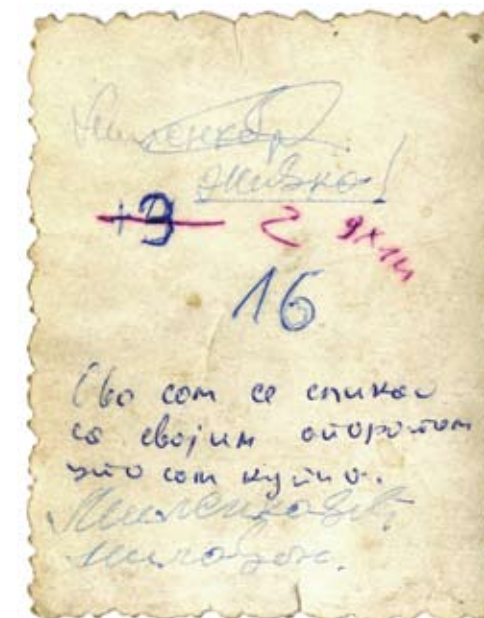 Живко!
+3 2 9x14
16
Ово сам се сликао
са својим апаратом
што сам купио.
Миленковић
Милован.